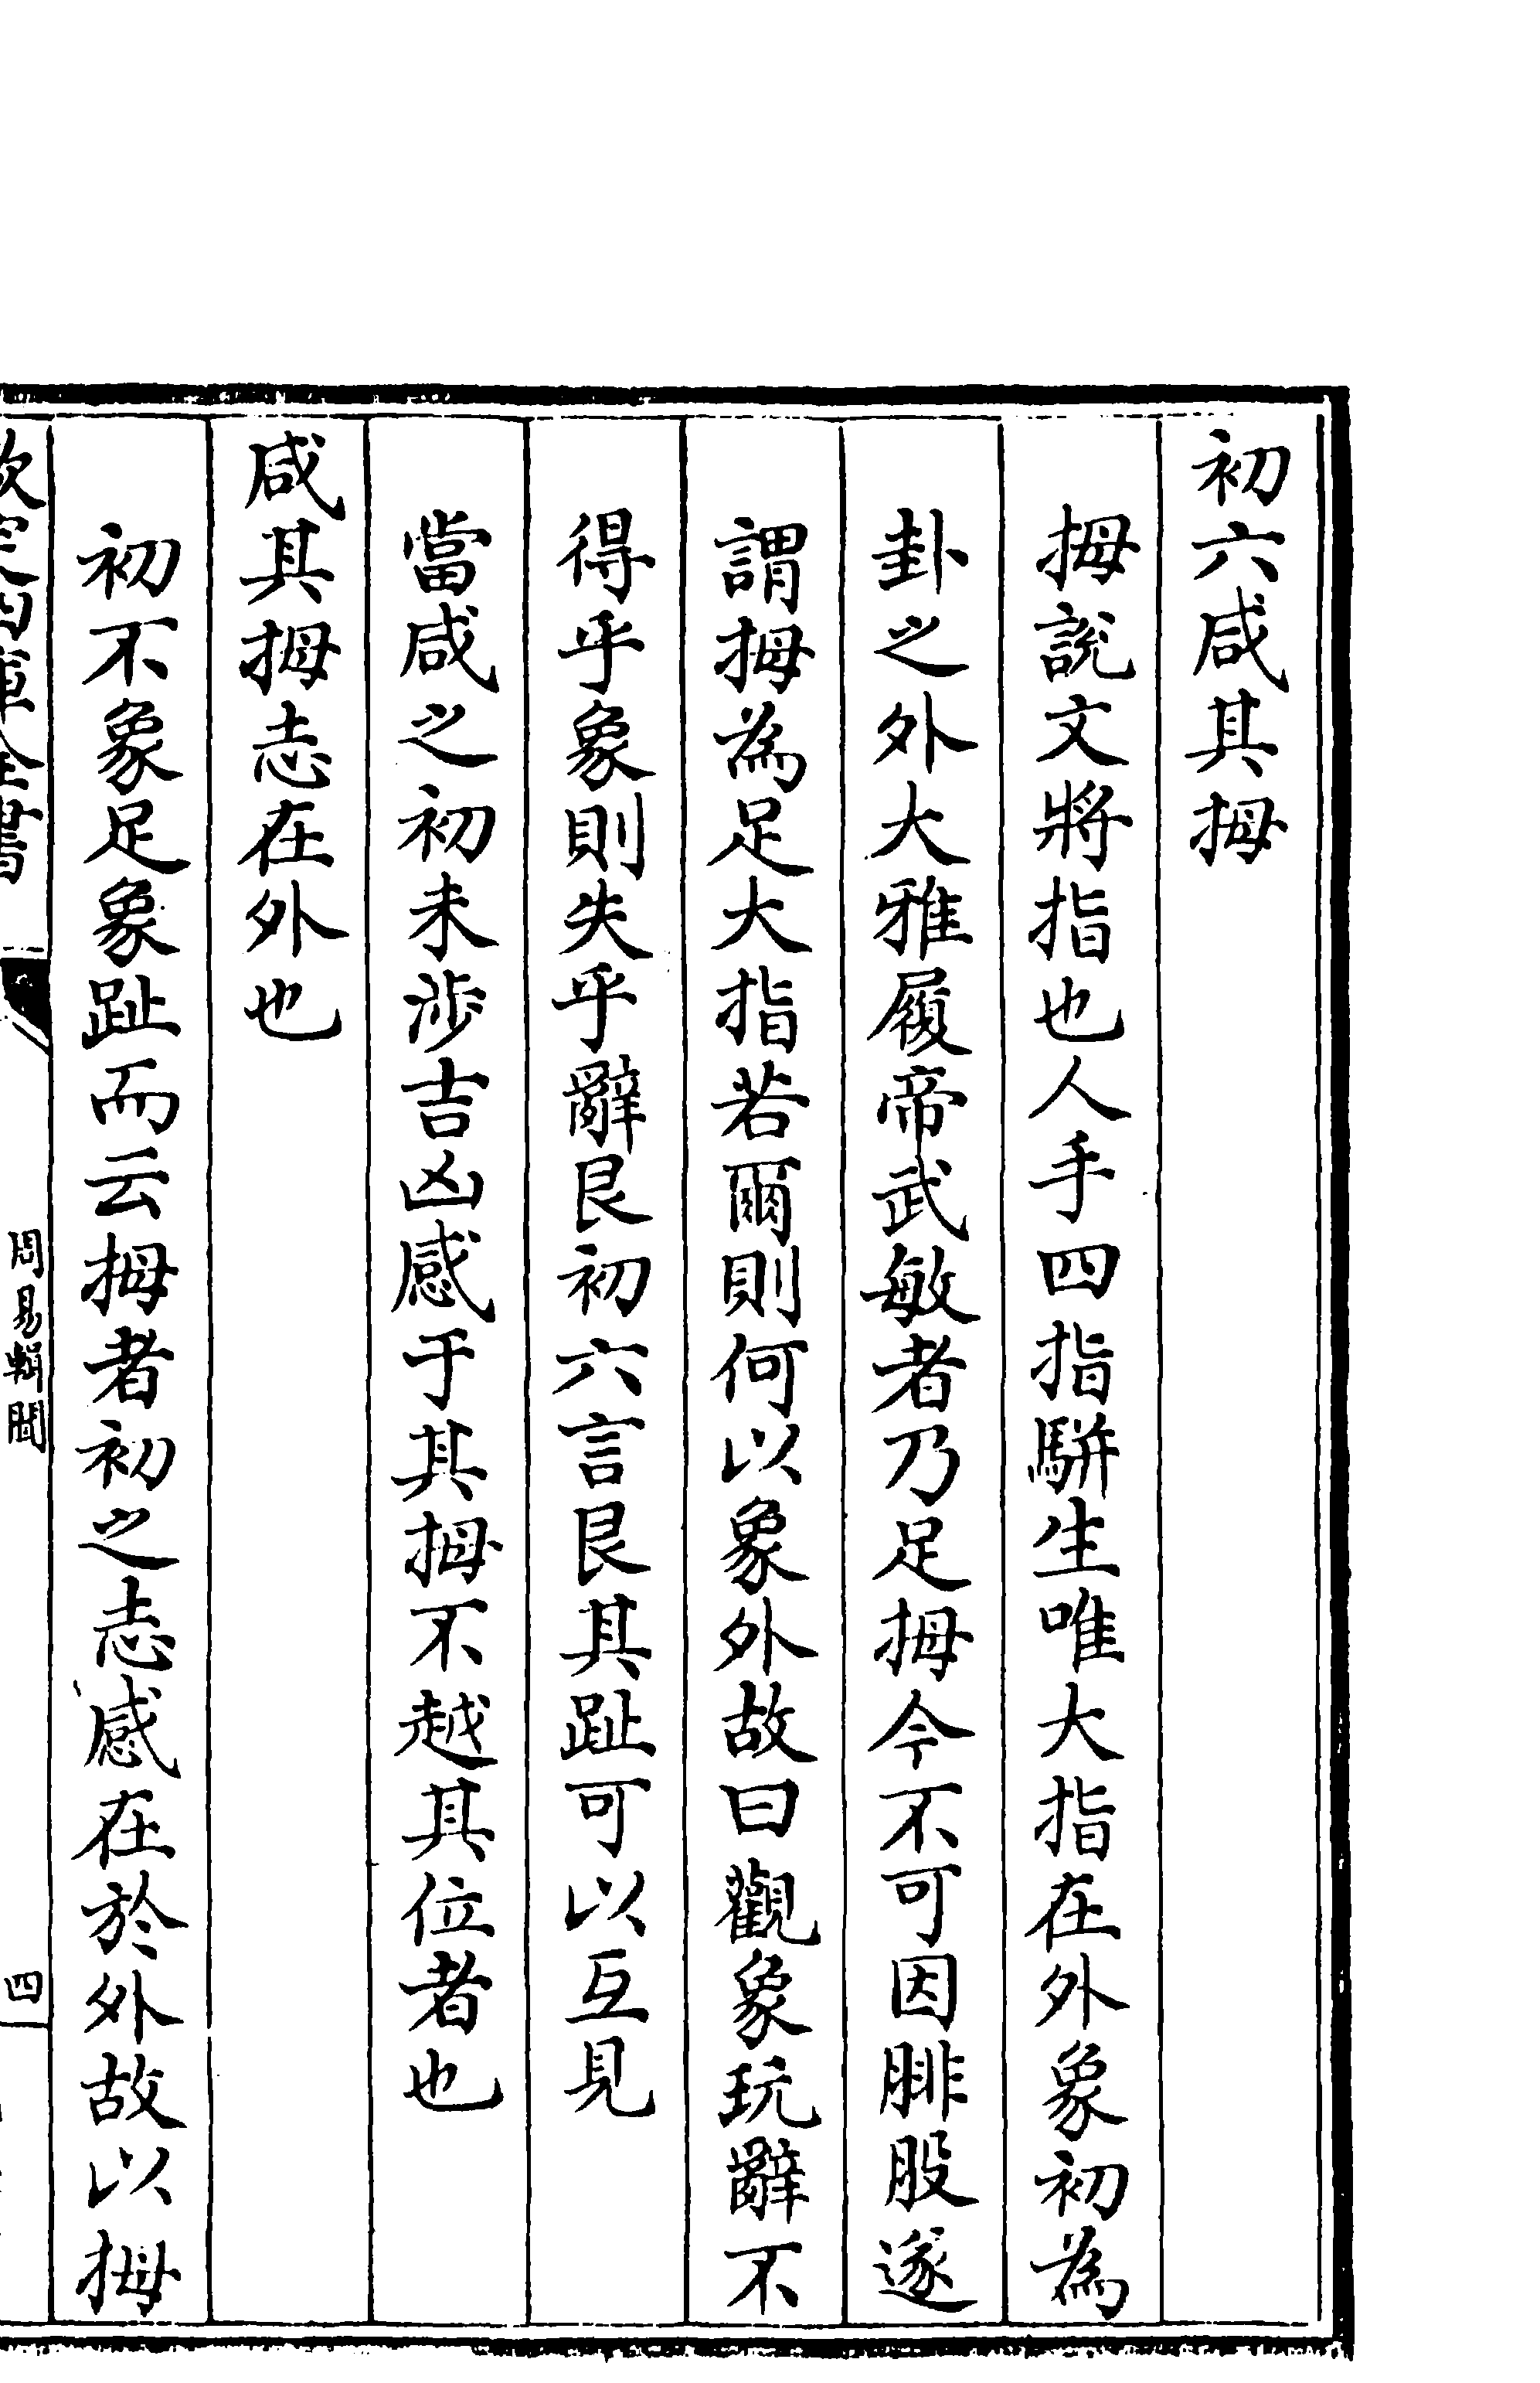 初六咸其拇
拇說文將指也人手四指駢生唯大指在外象初為
卦之外大雅履帝武敏者乃足拇今不可因腓股遂
謂拇為足大指若爾則何以象外故曰觀象玩辭不
得乎象則失乎辭艮初六言艮其趾可以互見
當咸之初未涉吉凶感于其拇不越其位者也
咸其拇志在外也
初不象足象趾而云拇者初之志感在於外故以拇
欽定四庫全書
周易輯聞
四